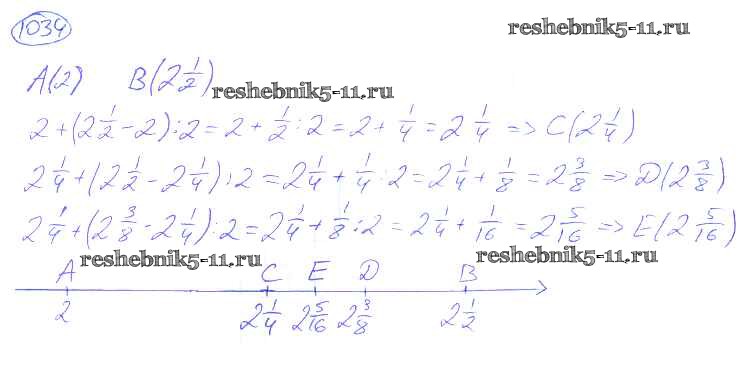 1034
reshebnik5-11.ru
A(2) B(2 1/2)
reshebnik5-11.ru
2+(2 1/2-2):2=2+1/2:2=2+1/4=2 1/4 => C(2 1/4)
2 1/4+(2 1/2-2 1/4):2=2 1/4+1/4:2=2 1/4+1/8=2 3/8 => D(2 3/8)
2 1/4+(2 3/8-2 1/4):2=2 1/4+1/8:2=2 1/4+1/16=2 5/16 => E(2 5/16)
reshebnik5-11.ru reshebnik5-11.ru
A C E D B
2 2 1/4 2 5/16 2 3/8 2 1/2
reshebnik5-11.ru